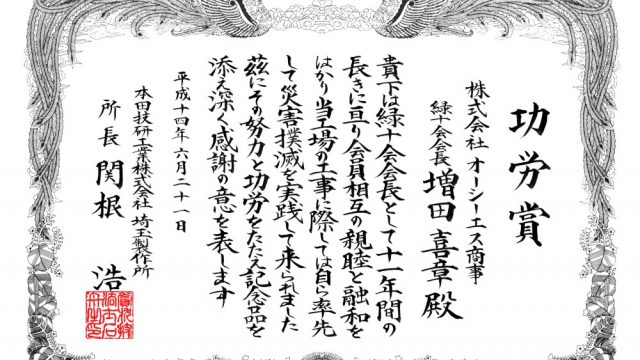 功労賞
株式会社 オーシーエス商事
緑十会会長 増田喜章殿
貴下は緑十会会長として十一年間の
長きに亘り会員相互の親睦と融和を
はかり当工場の工事に際しては自ら率先
して災害撲滅を実践して来られました
茲にその努力と功労をたたえ記念品を
添え深く感謝の意を表します
平成十四年六月二十一日
本田技研工業株式会社 埼玉製作所
所長 関根 浩